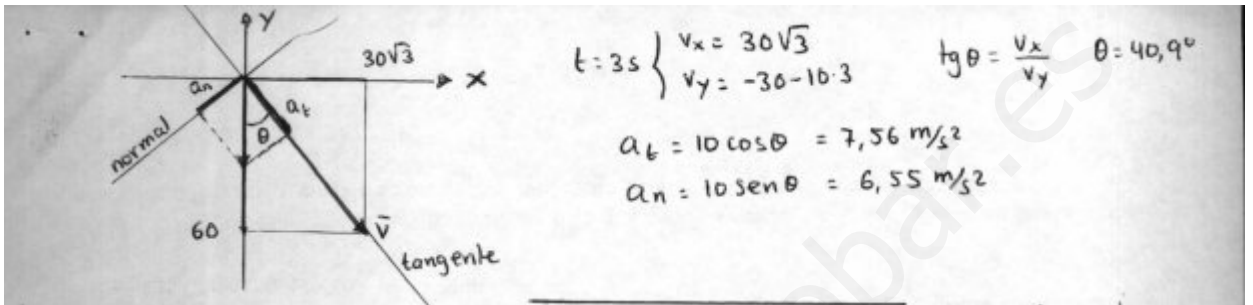 Y
30√3
X
a_n
a_t
θ
normal
60
v̄
tangente
t = 3s { v_x = 30√3
v_y = -30-10·3
tg θ = v_x / v_y θ = 40,9º
a_t = 10 cos θ = 7,56 m/s²
a_n = 10 sen θ = 6,55 m/s²
obar.es